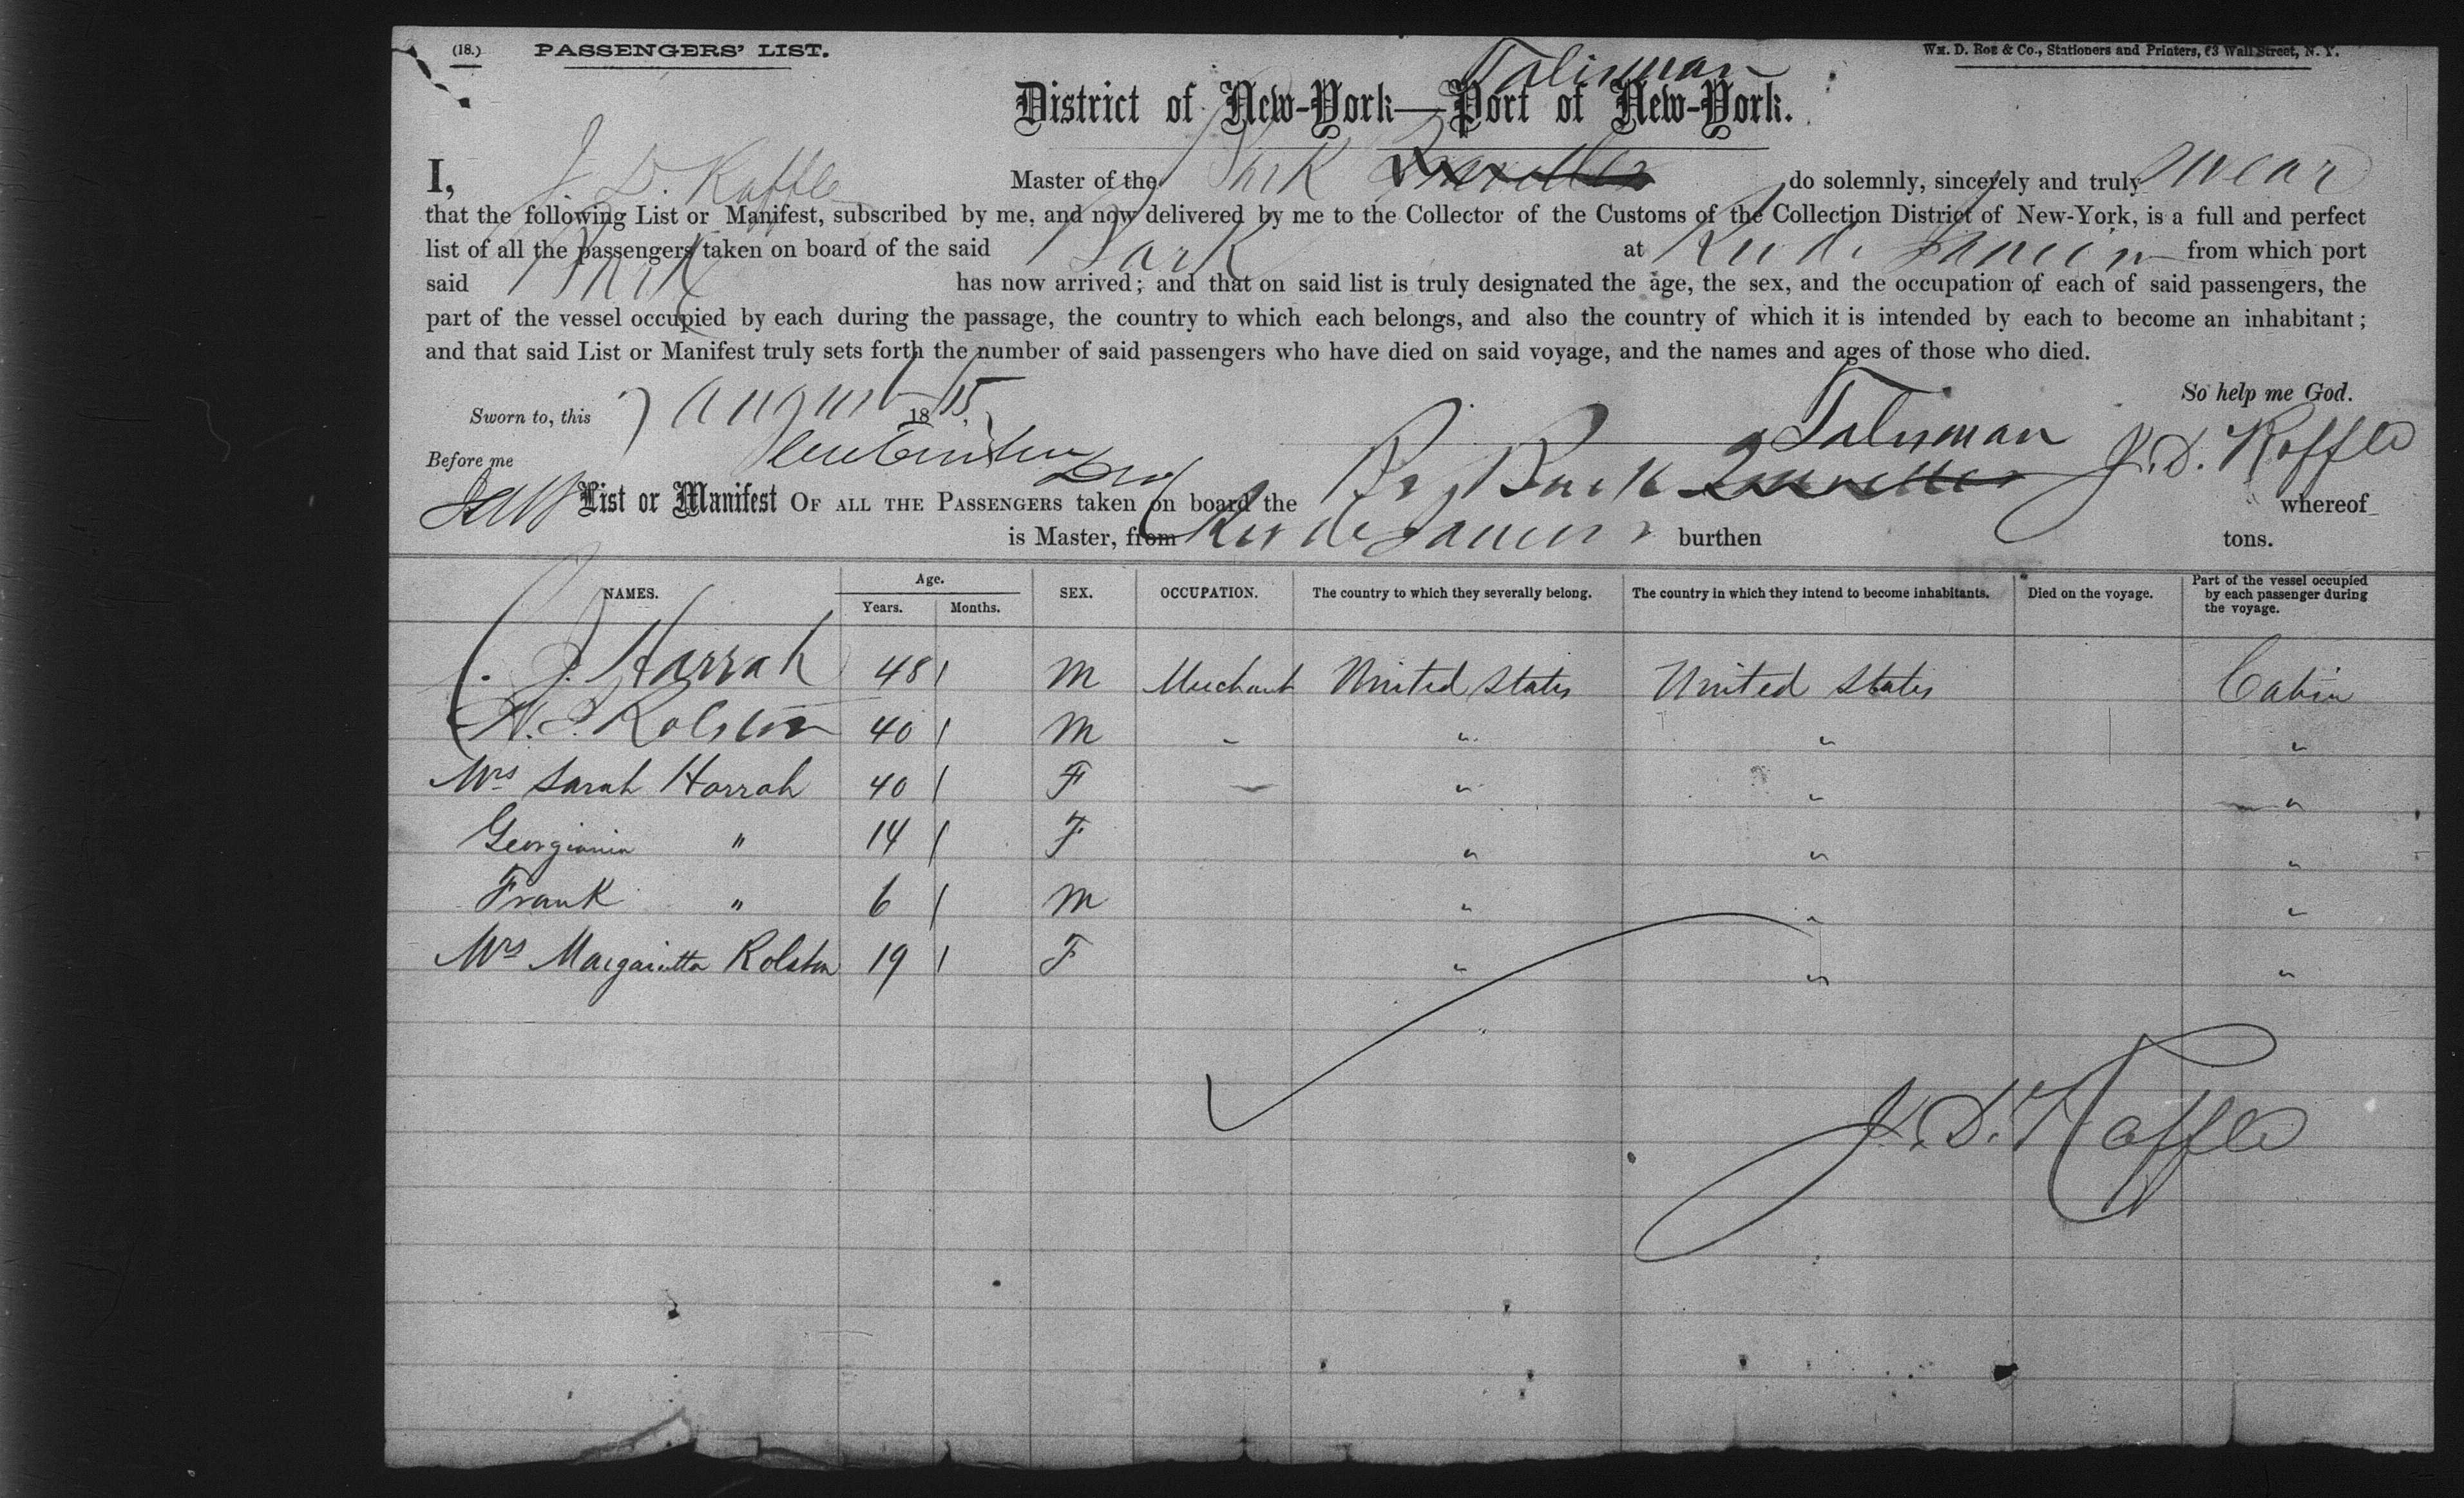 (18.) PASSENGERS' LIST. WM. D. ROE & Co., Stationers and Printers, 63 Wall Street, N. Y.
Talisman
District of New-York—Port of New-York.
I, J. D. Kaffle Master of the Bark do solemnly, sincerely and truly swear
that the following List or Manifest, subscribed by me, and now delivered by me to the Collector of the Customs of the Collection District of New-York, is a full and perfect
list of all the passengers taken on board of the said Bark at Rio de Janeiro from which port
said Bark has now arrived; and that on said list is truly designated the age, the sex, and the occupation of each of said passengers, the
part of the vessel occupied by each during the passage, the country to which each belongs, and also the country of which it is intended by each to become an inhabitant;
and that said List or Manifest truly sets forth the number of said passengers who have died on said voyage, and the names and ages of those who died.
So help me God.
Sworn to, this 7 August 1875
Talisman J. D. Kaffle
Before me
List or Manifest OF ALL THE PASSENGERS taken on board the Br Bark whereof
is Master, from Rio de Janeiro burthen tons.
NAMES. Age. Years. Months. SEX. OCCUPATION. The country to which they severally belong. The country in which they intend to become inhabitants. Died on the voyage. Part of the vessel occupied by each passenger during the voyage.
J. Harrah 48 M Merchant United States United States Cabin
Rolston 40 M - " " "
Mrs Sarah Harrah 40 F - " " "
Georginnia " 14 F " " "
Frank " 6 M " " "
Mrs Margarietta Rolston 19 F " " "
J. D. Kaffle